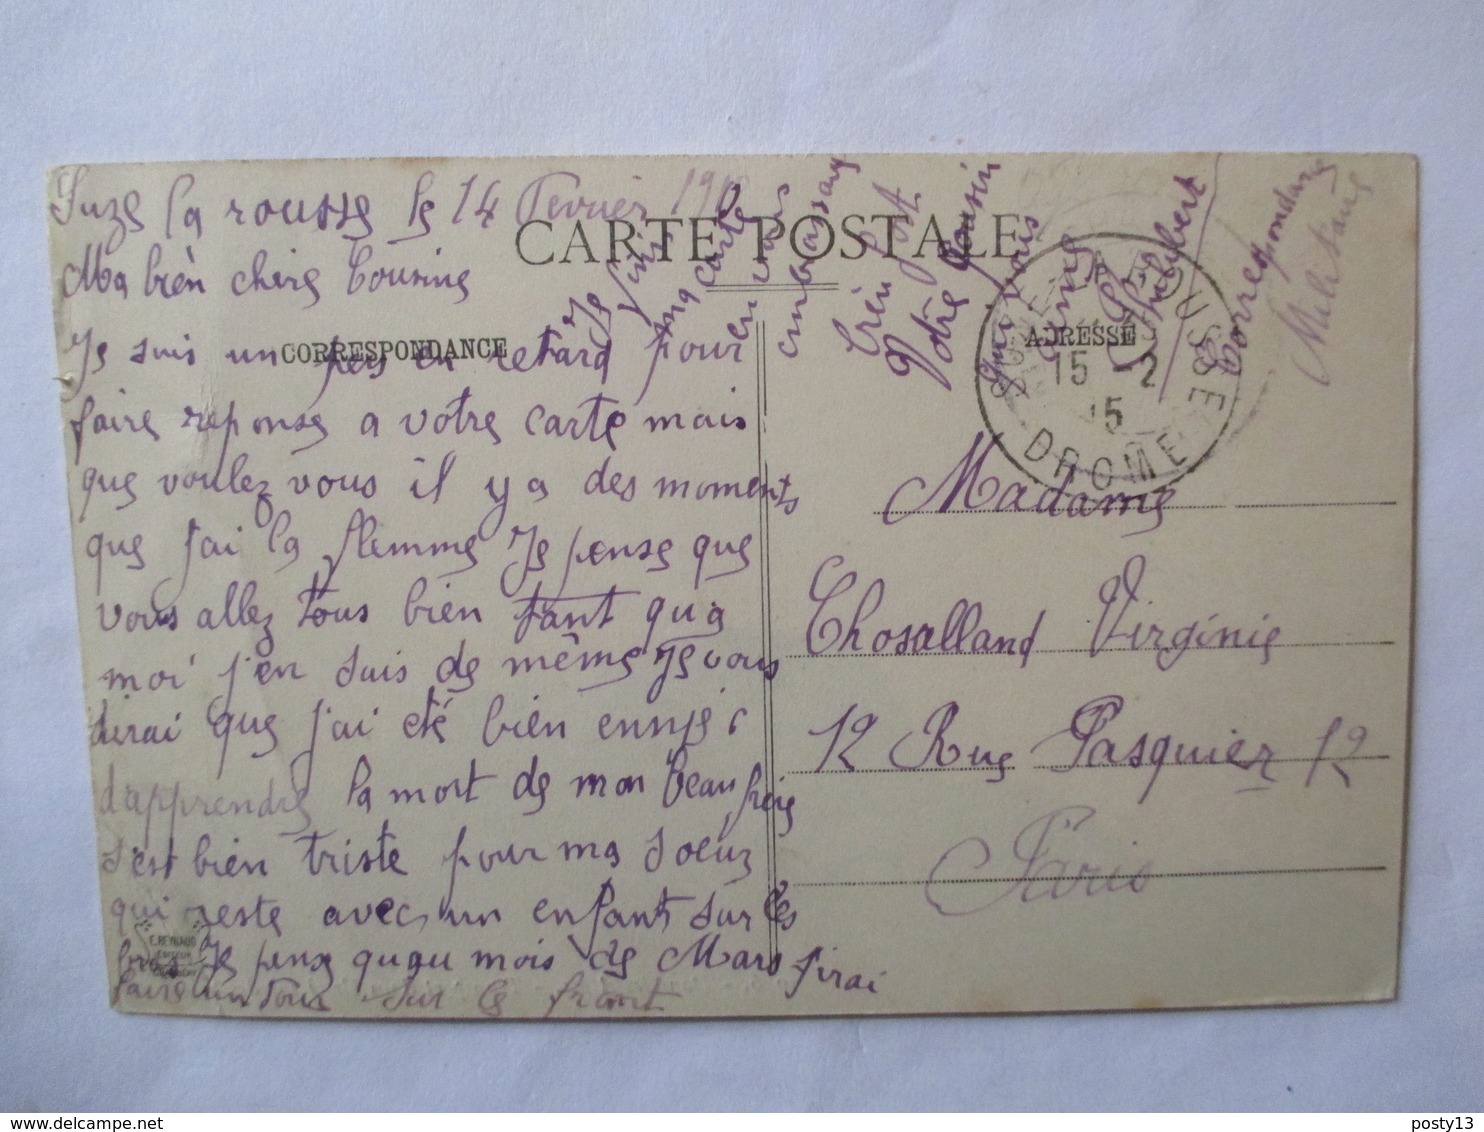 Suze la rousse le 14 Fevrier 191
CARTE POSTALE
Ma bien chere Cousine
CORRESPONDANCE
Je suis un peu en retard pour
faire reponse a votre carte mais
que voulez vous il y a des moments
que j'ai la flemme Je pense que
vous allez tous bien tant qu'a
moi j'en suis de même Je vous
dirai que j'ai eté bien ennyé
d'apprendre la mort de mon beau frère
s'est bien triste pour ma soeur
qui reste avec un enfant sur les
bras Je pense quau mois de Mars j'irai
faire un tour sur le front
Je finis
ma carte
en vous
embrassant
bien fort
Votre Cousin
qui vous
aime
Philibert
Correspondance
Militaire
SUZE-LA-ROUSSE
15 -2
15
DROME
ADRESSE
Madame
Chosalland Virginie
12 Rue Pasquier 12
Paris
E. REYNAUD
EDITEUR
posty13
delcampe.net